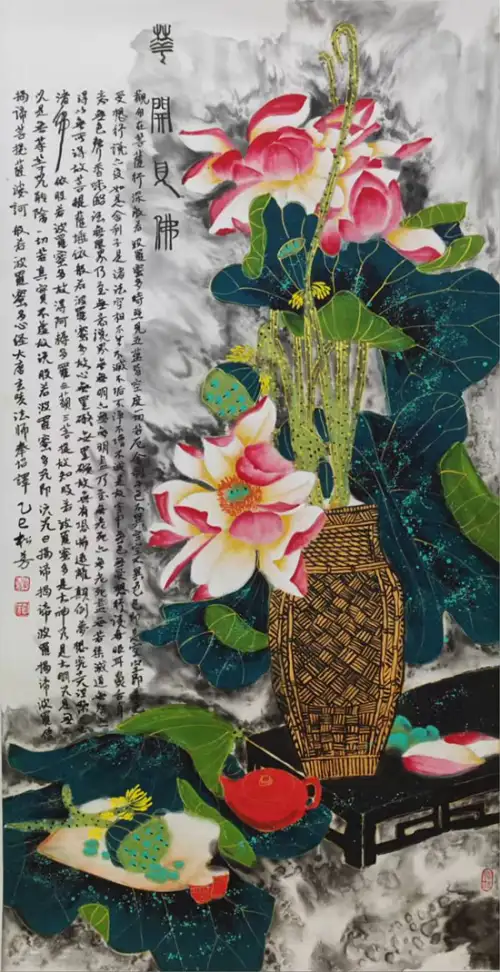 華開見佛
觀自在菩薩行深般若波羅蜜多時照見五蘊皆空度一切苦厄舍利子色不異空空不異色色即是空空即是色
受想行識亦復如是舍利子是諸法空相不生不滅不垢不淨不增不減是故空中無色無受想行識無眼耳鼻舌身
意無色聲香味觸法無眼界乃至無意識界無無明亦無無明盡乃至無老死亦無老死盡無苦集滅道無智亦無
得以無所得故菩提薩埵依般若波羅蜜多故心無罣礙無罣礙故無有恐怖遠離顛倒夢想究竟涅槃三世
諸佛依般若波羅蜜多故得阿耨多羅三藐三菩提故知般若波羅蜜多是大神咒是大明咒是無上
咒是無等等咒能除一切苦真實不虛故說般若波羅蜜多咒即說咒曰揭諦揭諦波羅揭諦波羅僧
揭諦菩提薩婆訶般若波羅蜜多心經大唐玄奘法師奉詔譯 乙巳松芳